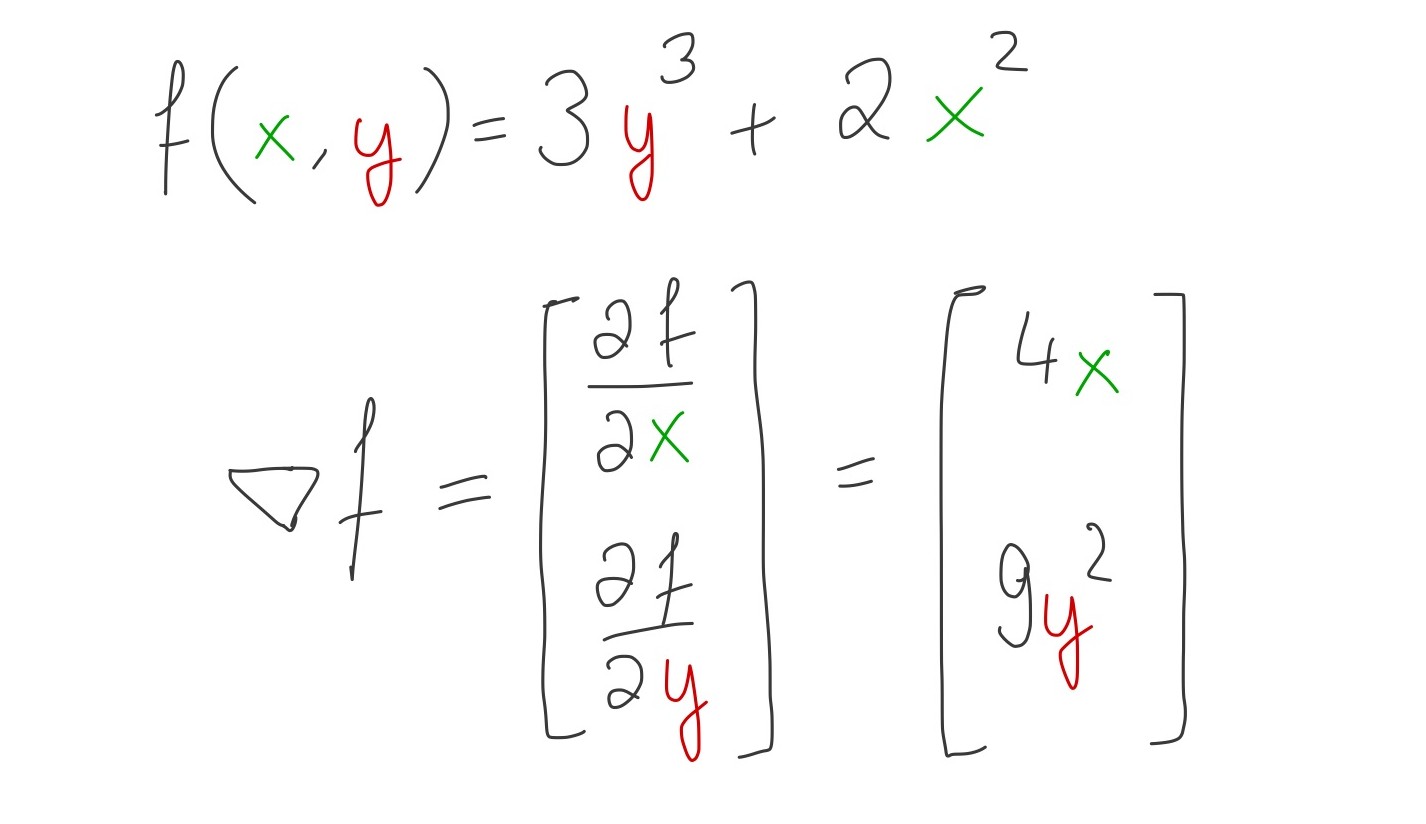 f(x, y) = 3y³ + 2x²
∇f = [∂f/∂x ∂f/∂y] = [4x 9y²]